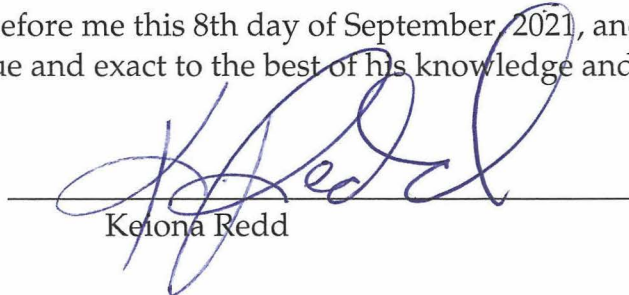 efore me this 8th day of September, 2021, and
ue and exact to the best of his knowledge and
K Redd
Keiona Redd